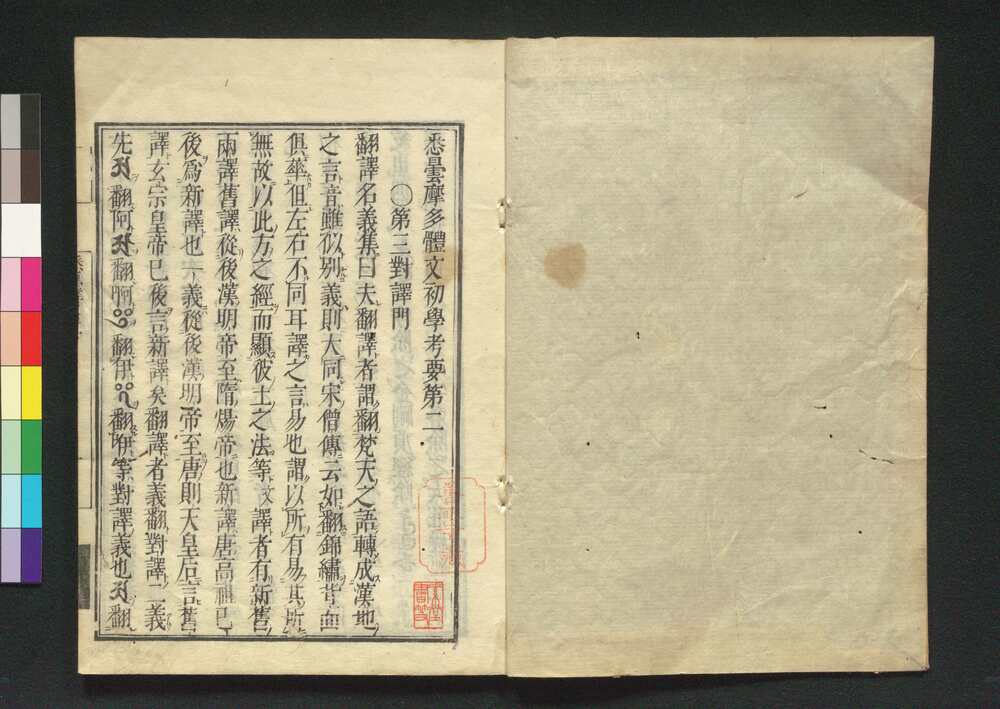 悉曇摩多體文初學考要第二
〇第三對譯門
翻譯名義集曰夫翻譯者謂翻梵天之語轉成漢地
之言音雖似別義則大同宋僧傳云如翻錦繡背面
俱華但左右不同耳譯之言易也謂以所有易其所
無故以此方之經而顯彼土之法等文譯者有新舊
兩譯舊譯從後漢明帝至隋煬帝也新譯唐高祖已
後爲新譯也一義從後漢明帝至唐則天皇后言舊
譯玄宗皇帝已後言新譯矣翻譯者義翻對譯二義
先𑖀翻阿𑖁翻啊𑖂翻伊𑖃翻等對譯義也𑖀翻